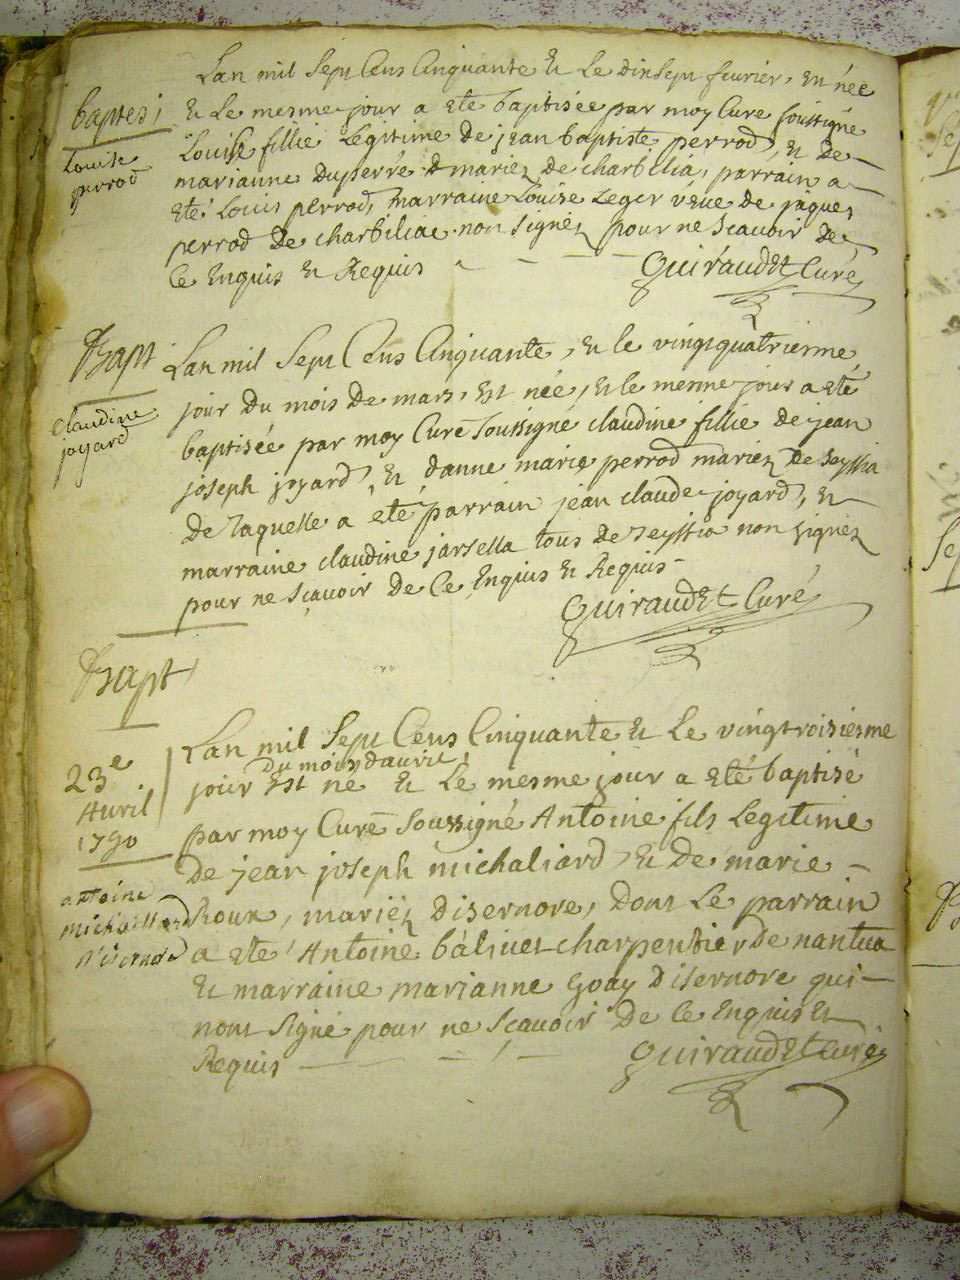 Lan mil Sept Cens Cinquante Et Le dixsept fevrier, Est née
baptes
Et Le mesme jour a eté baptisée par moy Curé soussigné
Louise
perrod
Louise fillie Legitime de jean baptiste perrod, Et de
marianne duperré mariez de charbilia, parrain a
eté Louis perrod, marraine Louise Leger veue de jaques
perrod de charbiliac non signez pour ne scavoir de
Ce Enquis Et Requis
Guiraudet Curé
Bapt
Lan mil Sept Cens Cinquante, Et le vingtquatrieme
claudine
joyard
jour du mois de mars, Est née, Et le mesme jour a eté
baptisée par moy Curé soussigné claudine fillie de jean
joseph joyard, Et danne marie perrod mariez de seyssia
de laquelle a eté parrain jean claude joyard, Et
marraine claudine jarsella tous de seyssia non signez
pour ne scavoir de Ce Enquis Et Requis
Guiraudet Curé
Bapt
23e
Avril
1750
Lan mil Sept Cens Cinquante Et Le vingtroisiesme
du mois davril
jour Est né Et Le mesme jour a eté baptisé
par moy Curé soussigné Antoine fils Legitime
De jean joseph michaliard, Et de marie
antoine
michaillard
d'isernore
Roux, mariez disernore, dont Le parrain
a eté Antoine balivet charpentier de nantua
Et marraine marianne goay disernore qui
nont signé pour ne scavoir De Ce Enquis Et
Requis
Guiraudet Curé